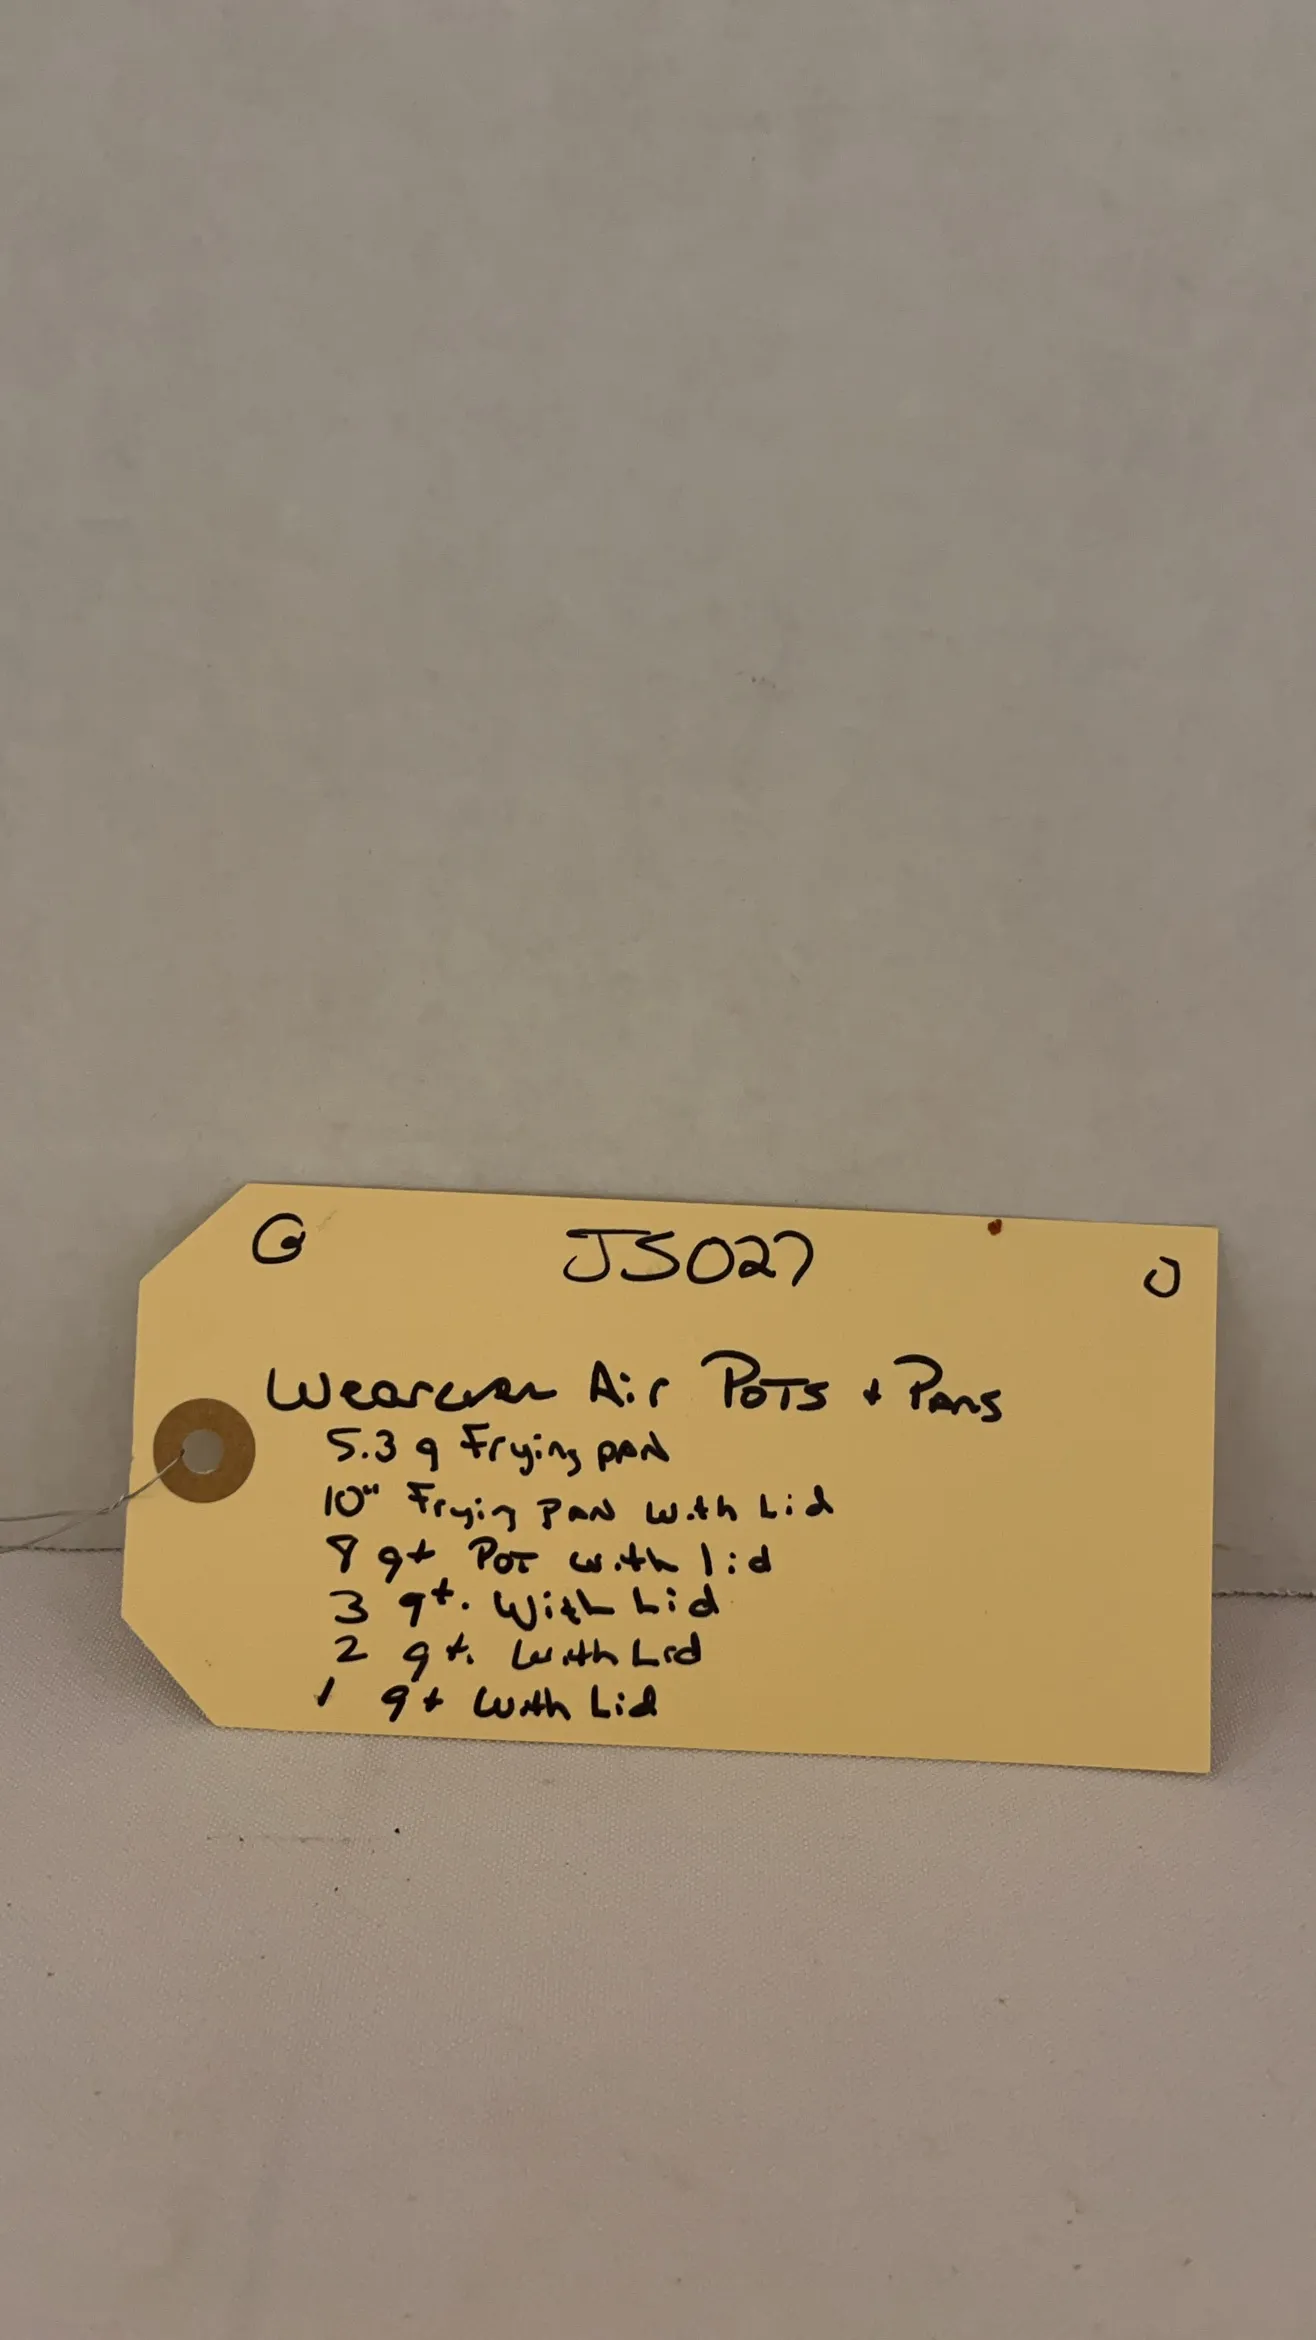 G JS027 J
Wearever Air Pots + Pans
5.3 q Frying pan
10" Frying Pan with Lid
8 qt Pot with lid
3 qt. With Lid
2 qt. With Lid
1 qt With Lid